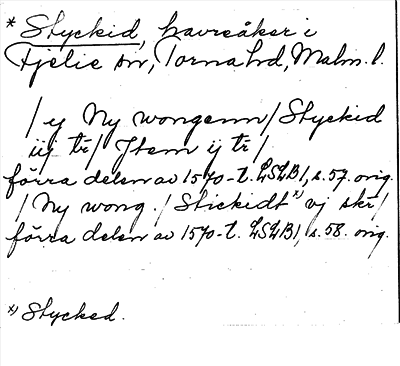 * Styckid, havreåker i
Fjelie sn, Torna hd, Malm. l.
/ y Ny wongenn / Styckid
iij tr / Jtem ij tr /
förra delen av 1570-t. LSLB1, s. 57. orig.
/ Ny wong. / Stickidt x) vj skr /
förra delen av 1570-t. LSLB1, s. 58. orig.
x) Stycked.